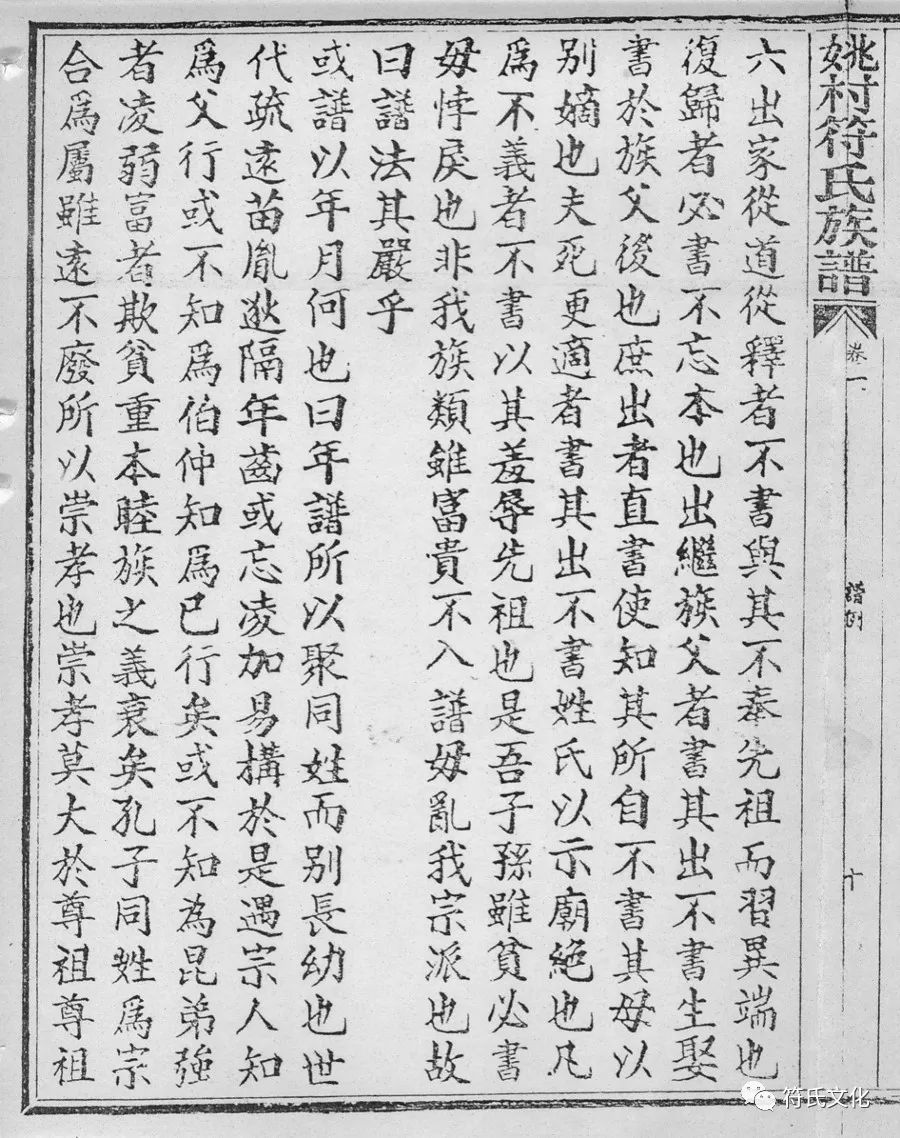 姚村符氏族譜
卷一
譜例
十
六出家從道從釋者不書與其不奉先祖而習異端也
復歸者必書不忘本也出繼族父者書其出不書生娶
書於族父後也庶出者直書使知其所自不書其母以
別嫡也夫死更適者書其出不書姓氏以示廟絕也凡
爲不義者不書以其羞辱先祖也是吾子孫雖貧必書
毋悖戾也非我族類雖富貴不入譜毋亂我宗派也故
曰譜法其嚴乎
或譜以年月何也曰年譜所以聚同姓而别長幼也世
代疏遠苗胤逖隔年齒或忘凌加易搆於是遇宗人知
爲父行或不知爲伯仲知爲已行矣或不知為昆弟強
者凌弱富者欺貧重本睦族之義衰矣孔子同姓爲宗
合爲屬雖遠不廢所以崇孝也崇孝莫大於尊祖尊祖
符氏文化